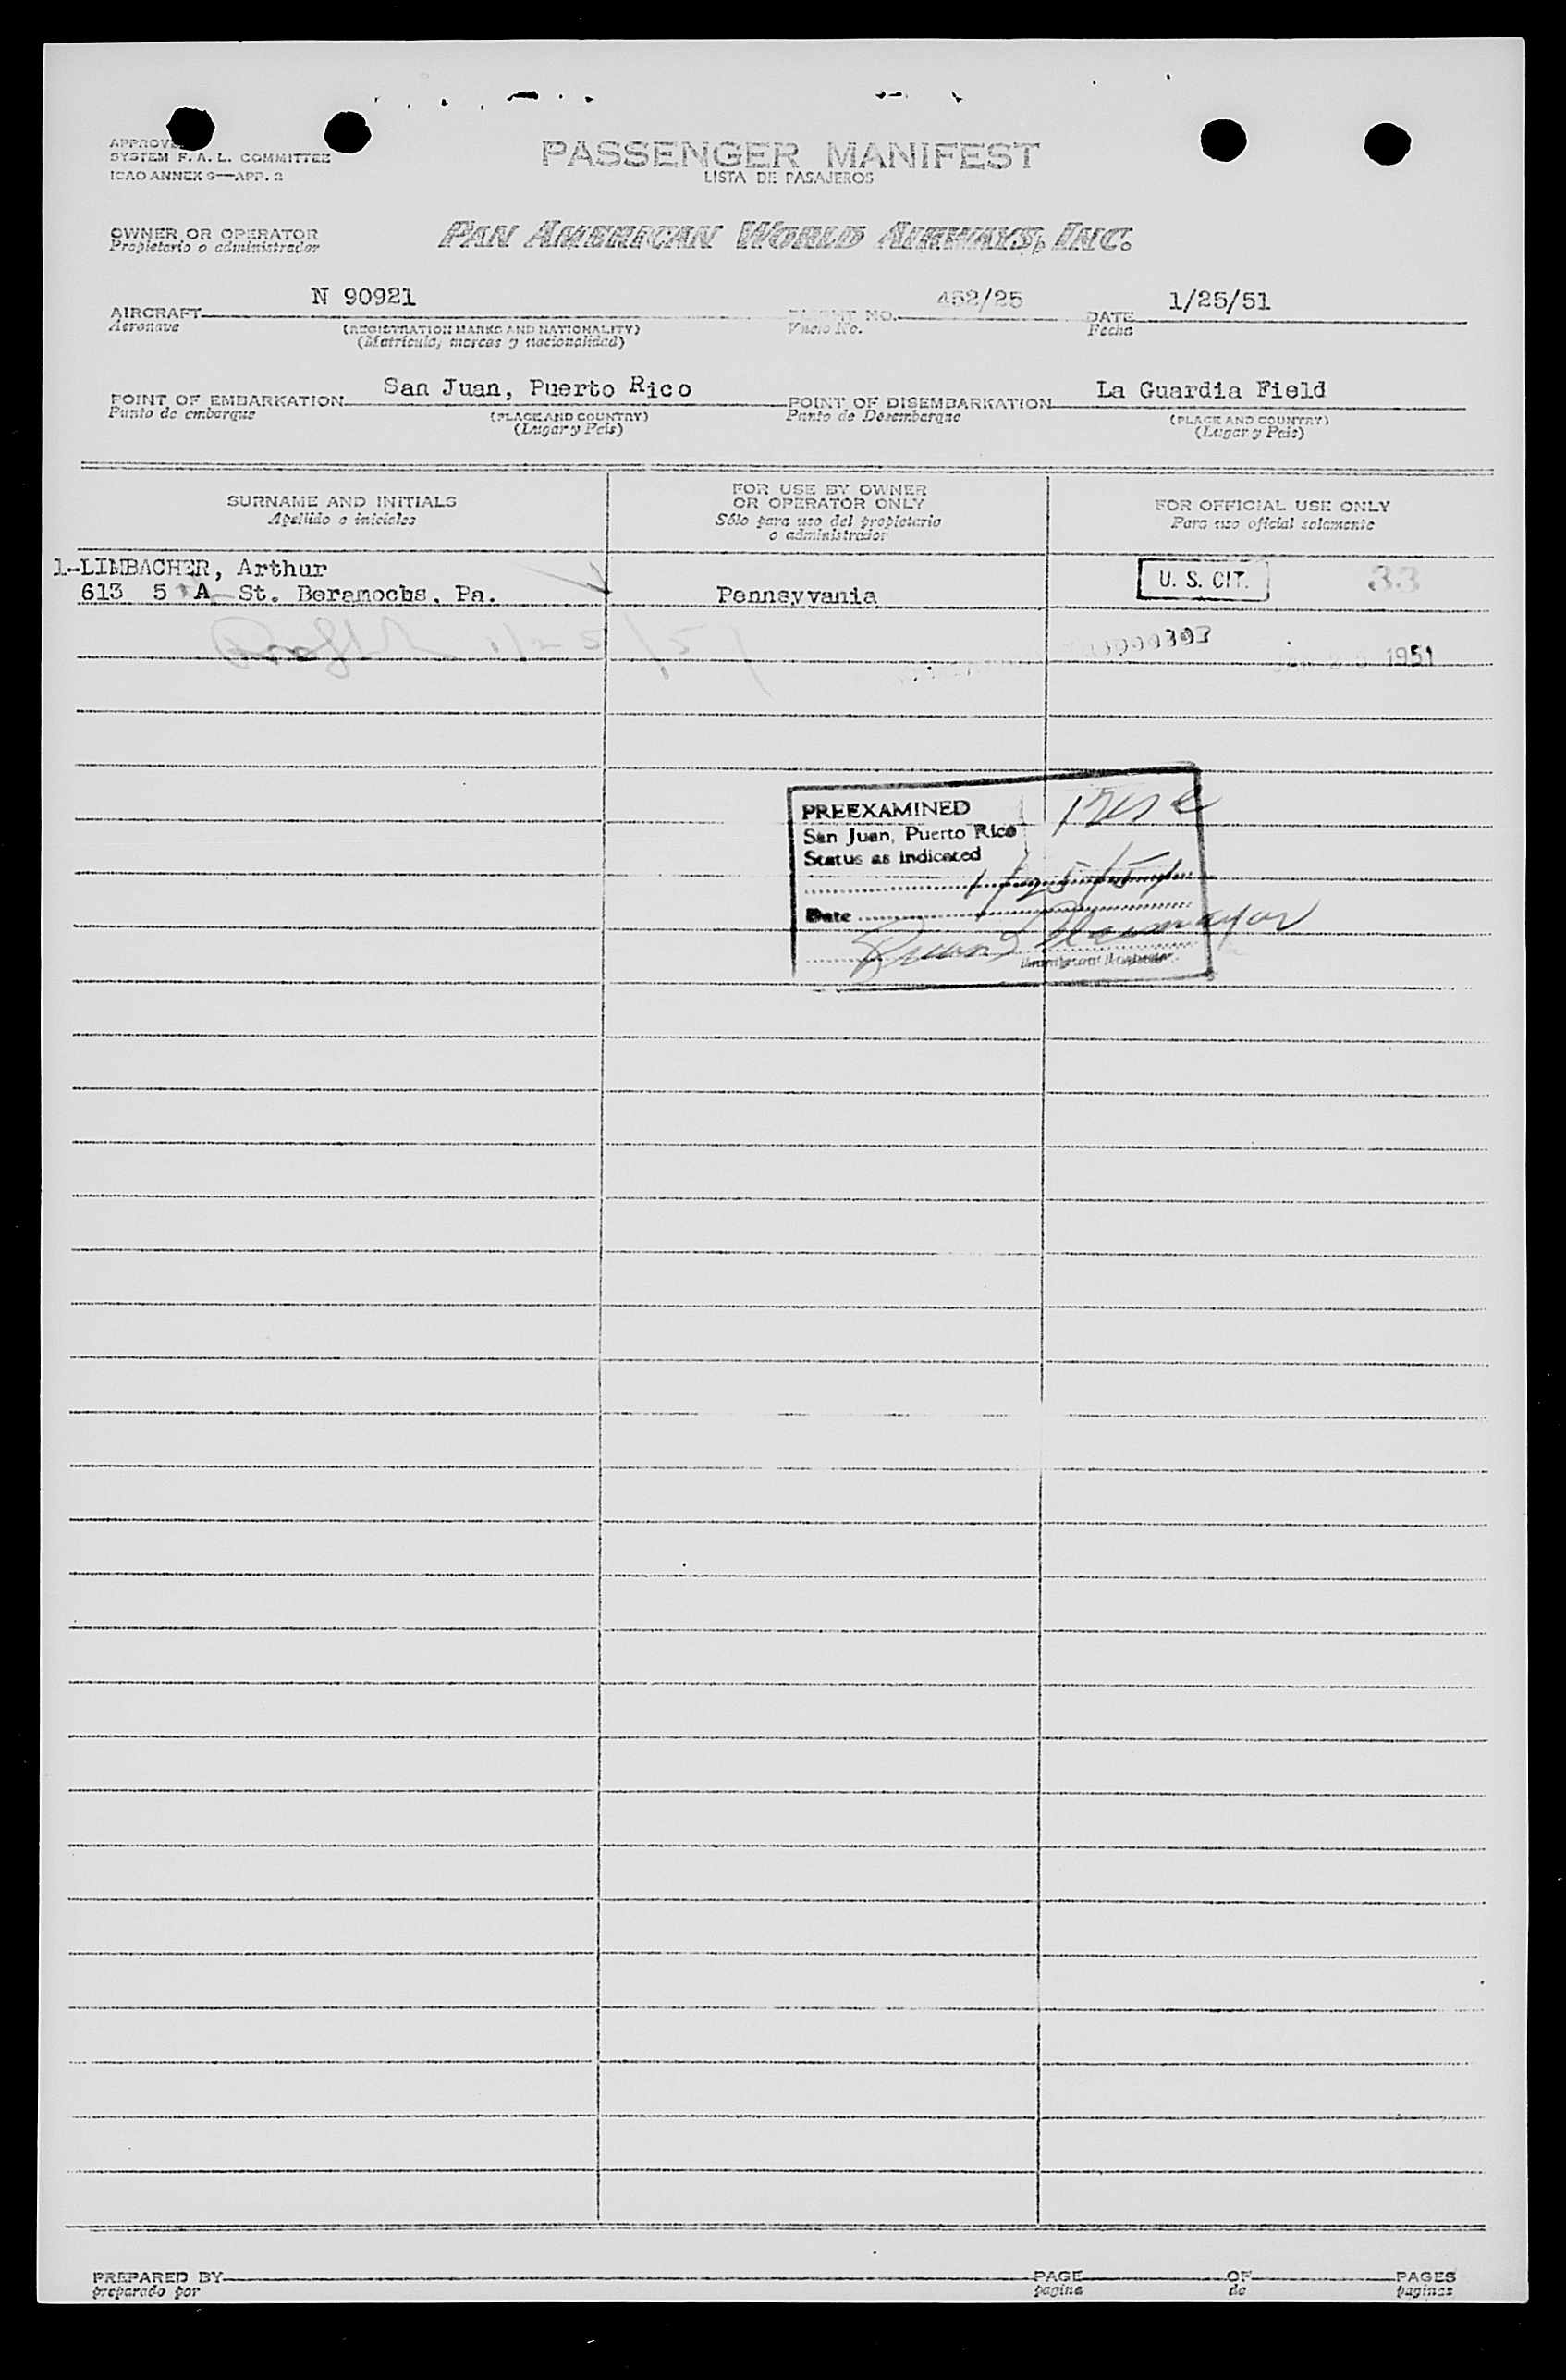 SYSTEM F. A. L. COMMITTEE
ICAO ANNEX 9—APP. 2
PASSENGER MANIFEST
LISTA DE PASAJEROS
OWNER OR OPERATOR
Propietario o administrador
PAN AMERICAN WORLD AIRWAYS, INC.
AIRCRAFT N 90921
Aeronave
(REGISTRATION MARKS AND NATIONALITY)
(Matricula, marcas y nacionalidad)
NO. 452/25
No.
DATE 1/25/51
Fecha
POINT OF EMBARKATION San Juan, Puerto Rico
Punto de embarque
(PLACE AND COUNTRY)
(Lugar y Pais)
POINT OF DISEMBARKATION La Guardia Field
Punto de Desembarque
(PLACE AND COUNTRY)
(Lugar y Pais)
SURNAME AND INITIALS
Apellido e iniciales
FOR USE BY OWNER
OR OPERATOR ONLY
Sólo para uso del propietario
o administrador
FOR OFFICIAL USE ONLY
Para uso oficial solamente
1-LIMBACHER, Arthur
613 5 A St. Beramochs, Pa.
Pennsyvania
U. S. CIT.
33
1951
PREEXAMINED
San Juan, Puerto Rico
Status as indicated
1/25/51
Date
PREPARED BY
preparado por
PAGE
pagina
OF
de
PAGES
paginas